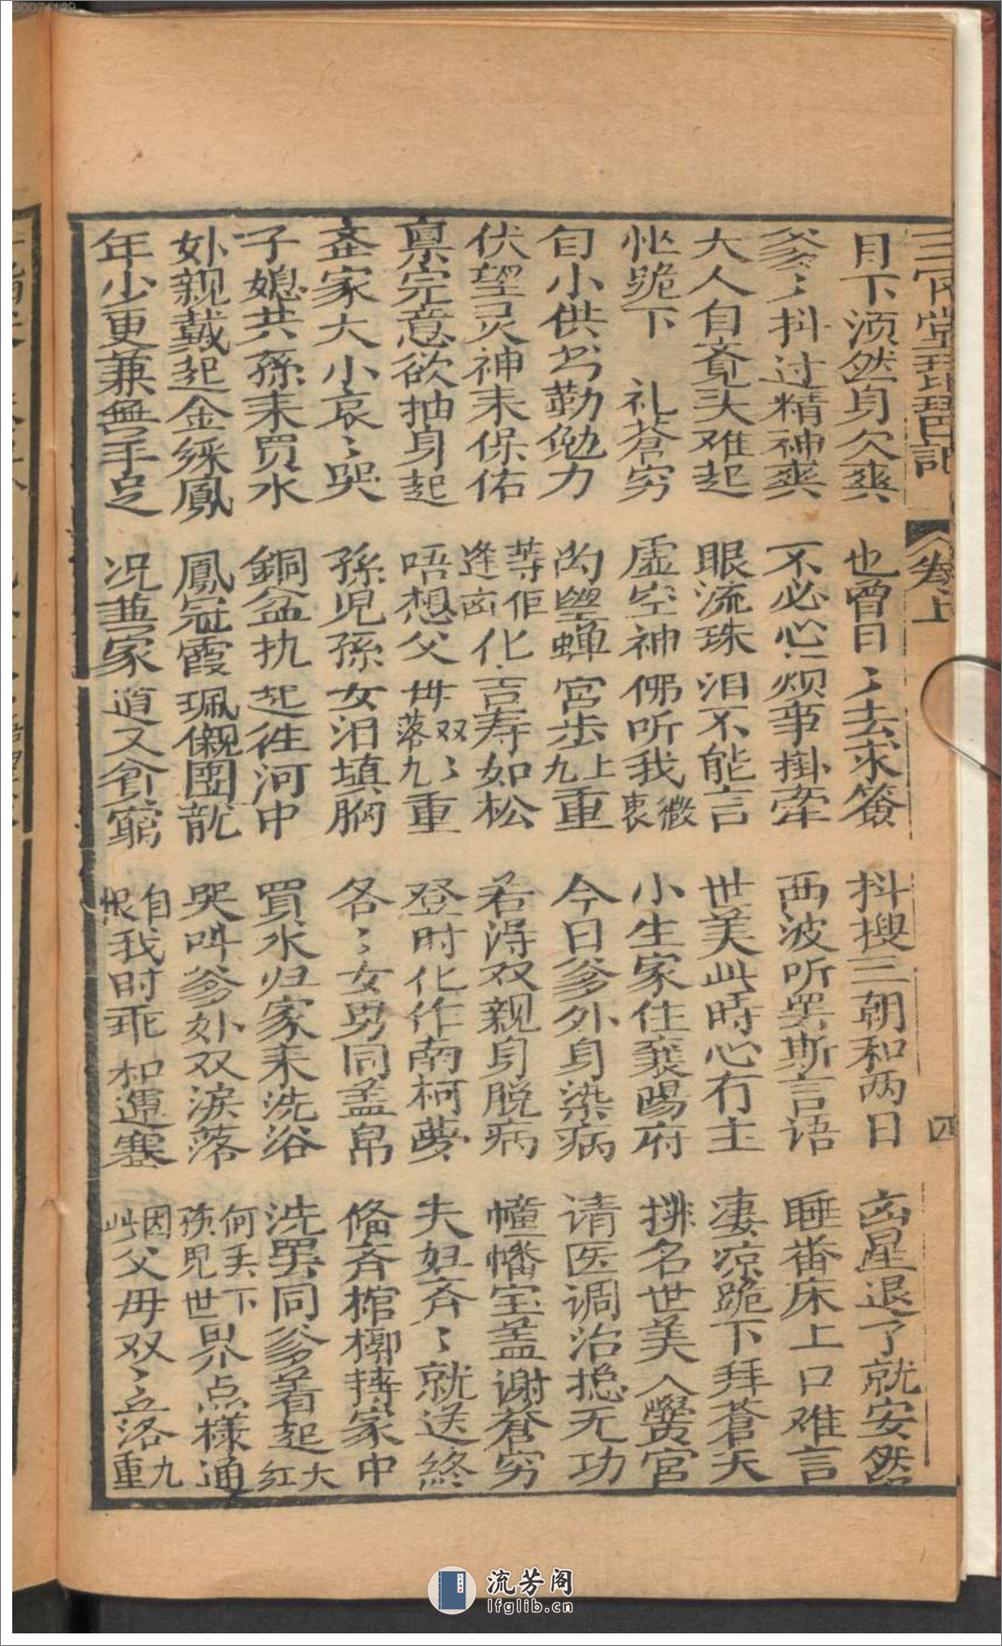 三官堂琵琶記 卷上 四
月下須然身欠爽 也曾日〻去求簽 抖搜三朝和两日 凶星退了就安然
爹〻抖过精神爽 不必心煩事掛牵 西波听罢斯言语 睡番床上口难言
大人自覔头难起 眼流珠泪不能言 世美此時心冇主 凄凉跪下拜苍天
忙跪下 礼蒼穷 虚空神佛听我微衷 小生家住襄陽府 排名世美入黌宫
自小供书勤勉力 蟾宫步上九重 今日爹外身染病 请医调治总无功
伏望灵神来保佑 等佢逢凶化吉寿如松 若得双親身脱病 幢幡宝盖谢蒼穷
禀完意欲抽身起 唔想父毋双〻落九重 登时化作南柯夢 夫妇斉〻就送終
夳家大小哀〻哭 孫児孫女泪填胸 各〻女男同盖帛 俻斉棺槨持家中
子媳共孫来買水 銅盆执起往河中 買水归家来洗浴 洗罢同爹着起大红
外親戴起金綵鳳 鳳冠霞珮儭團龍 哭叫爹外双淚落 何丢下孩児世界点樣通
年少更兼無手足 况兼家道又貧窮 自恨我时乖和運蹇 因此父毋双〻立落九重
流芳阁
lfglib.cn